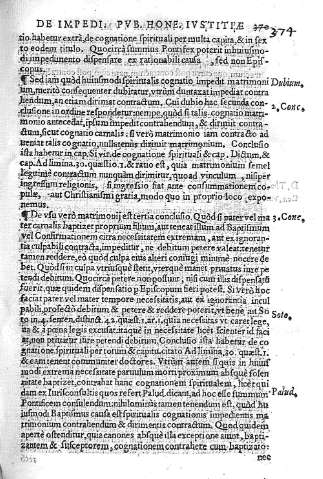 DE IMPEDI. PVB. HONE. IVSTITIÆ 370
374
tio habetur extrà, de cognatione spirituali per multa capita, & in sex
to eodem titulo. Quocirca summus Pontifex poterit in huiusmo-
di impedimento dispensare ex rationabili causa, sed non Epis-
copus.
¶ Sed iam quòd huiusmodi spiritualis cognatio impedit matrimoni
Dubium.
um, merito consequenter dubitatur, vtrùm duntaxat impediat contra
hendum, an etiam dirimat contractum. Cui dubio hac secunda con-
2. Conc.
clusione in ordine respondetur nempe, quòd si talis cognatio matri-
monio antecedat, ipsum impedit contrahendum, & dirimit contra-
ctum, sicut cognatio carnalis: si verò matrimonio iam contracto ad
ueniat talis cognatio, nullatenus dirimit matrimonium. Conclusio
ista habetur in cap. Si vir. de cognatione spirituali & cap. Dictum, &
cap. Ad limina. 30. quæst. 1. & ratio est, quia matrimonium semel
legitimè contractum nunquam dirimitur, quoad vinculum, nisi per
ingressum religionis, si ingressio fiat ante consummationem co-
pulæ, aut Christianismi gratia, modo quo in proprio loco expo-
nemus.
¶ De vsu verò matrimonij est tertia conclusio. Quòd si pater vel ma
3. Conc.
ter carnalis baptizet proprium filium, aut teneat illum ad Baptismum
vel Confirmationem citra necessitatem extremam, aut ex ignoran-
tia culpabili contracta, impeditur, ne debitum petere valeat: tenetur
tamen reddere, eò quòd culpa eius alteri coniugi minimè nocere de
bet. Quòd si in culpa vterque fuerit, vterque manet priuatus iure pe
tendi debitum. Quocirca petere non possunt, nisi cum illis dispensatũ
fuerit, quæ quidem dispensatio per Episcopum fieri potest. Si verò hoc
faciat pater vel mater tempore necessitatis, aut ex ignorantia incul
pabili, profectò debitum & petere & reddere poterit, vt bene ait So
Soto.
to in. 4. senten. distinct. 42. quæst. 1. ar. 1. quia necessitas vt caret lege,
ita & à pœna legis excusat: itaque in necessitate licèt scienter id faci
at, non priuatur iure petendi debitum. Conclusio ista habetur de co
gnatione spirituali per totum & capitu. citato Ad limina, 30. quæst. 1.
& eam tenent communiter doctores. Vtrùm autem si quis in huius
modi extrema necessitate paruulum morti proximum absque solen
nitate baptizet, contrahat hanc cognationem spiritualem, licèt qui
dam ex Iurisconsultis quos refert Palud. dicant, ad hoc esse summum
Palud.
Pontificem consulendum: nihilominus tamen tenendum est, quòd hu
iusmodi Baptismus causa est spiritualis cognationis impedientis ma
trimonium contrahendum & dirimentis contractum. Quod quidem
apertè ostenditur, quia canones absque illa exceptione aiunt, bapti-
zantem & susceptorem, cognationem contrahere cum baptizato:
nec